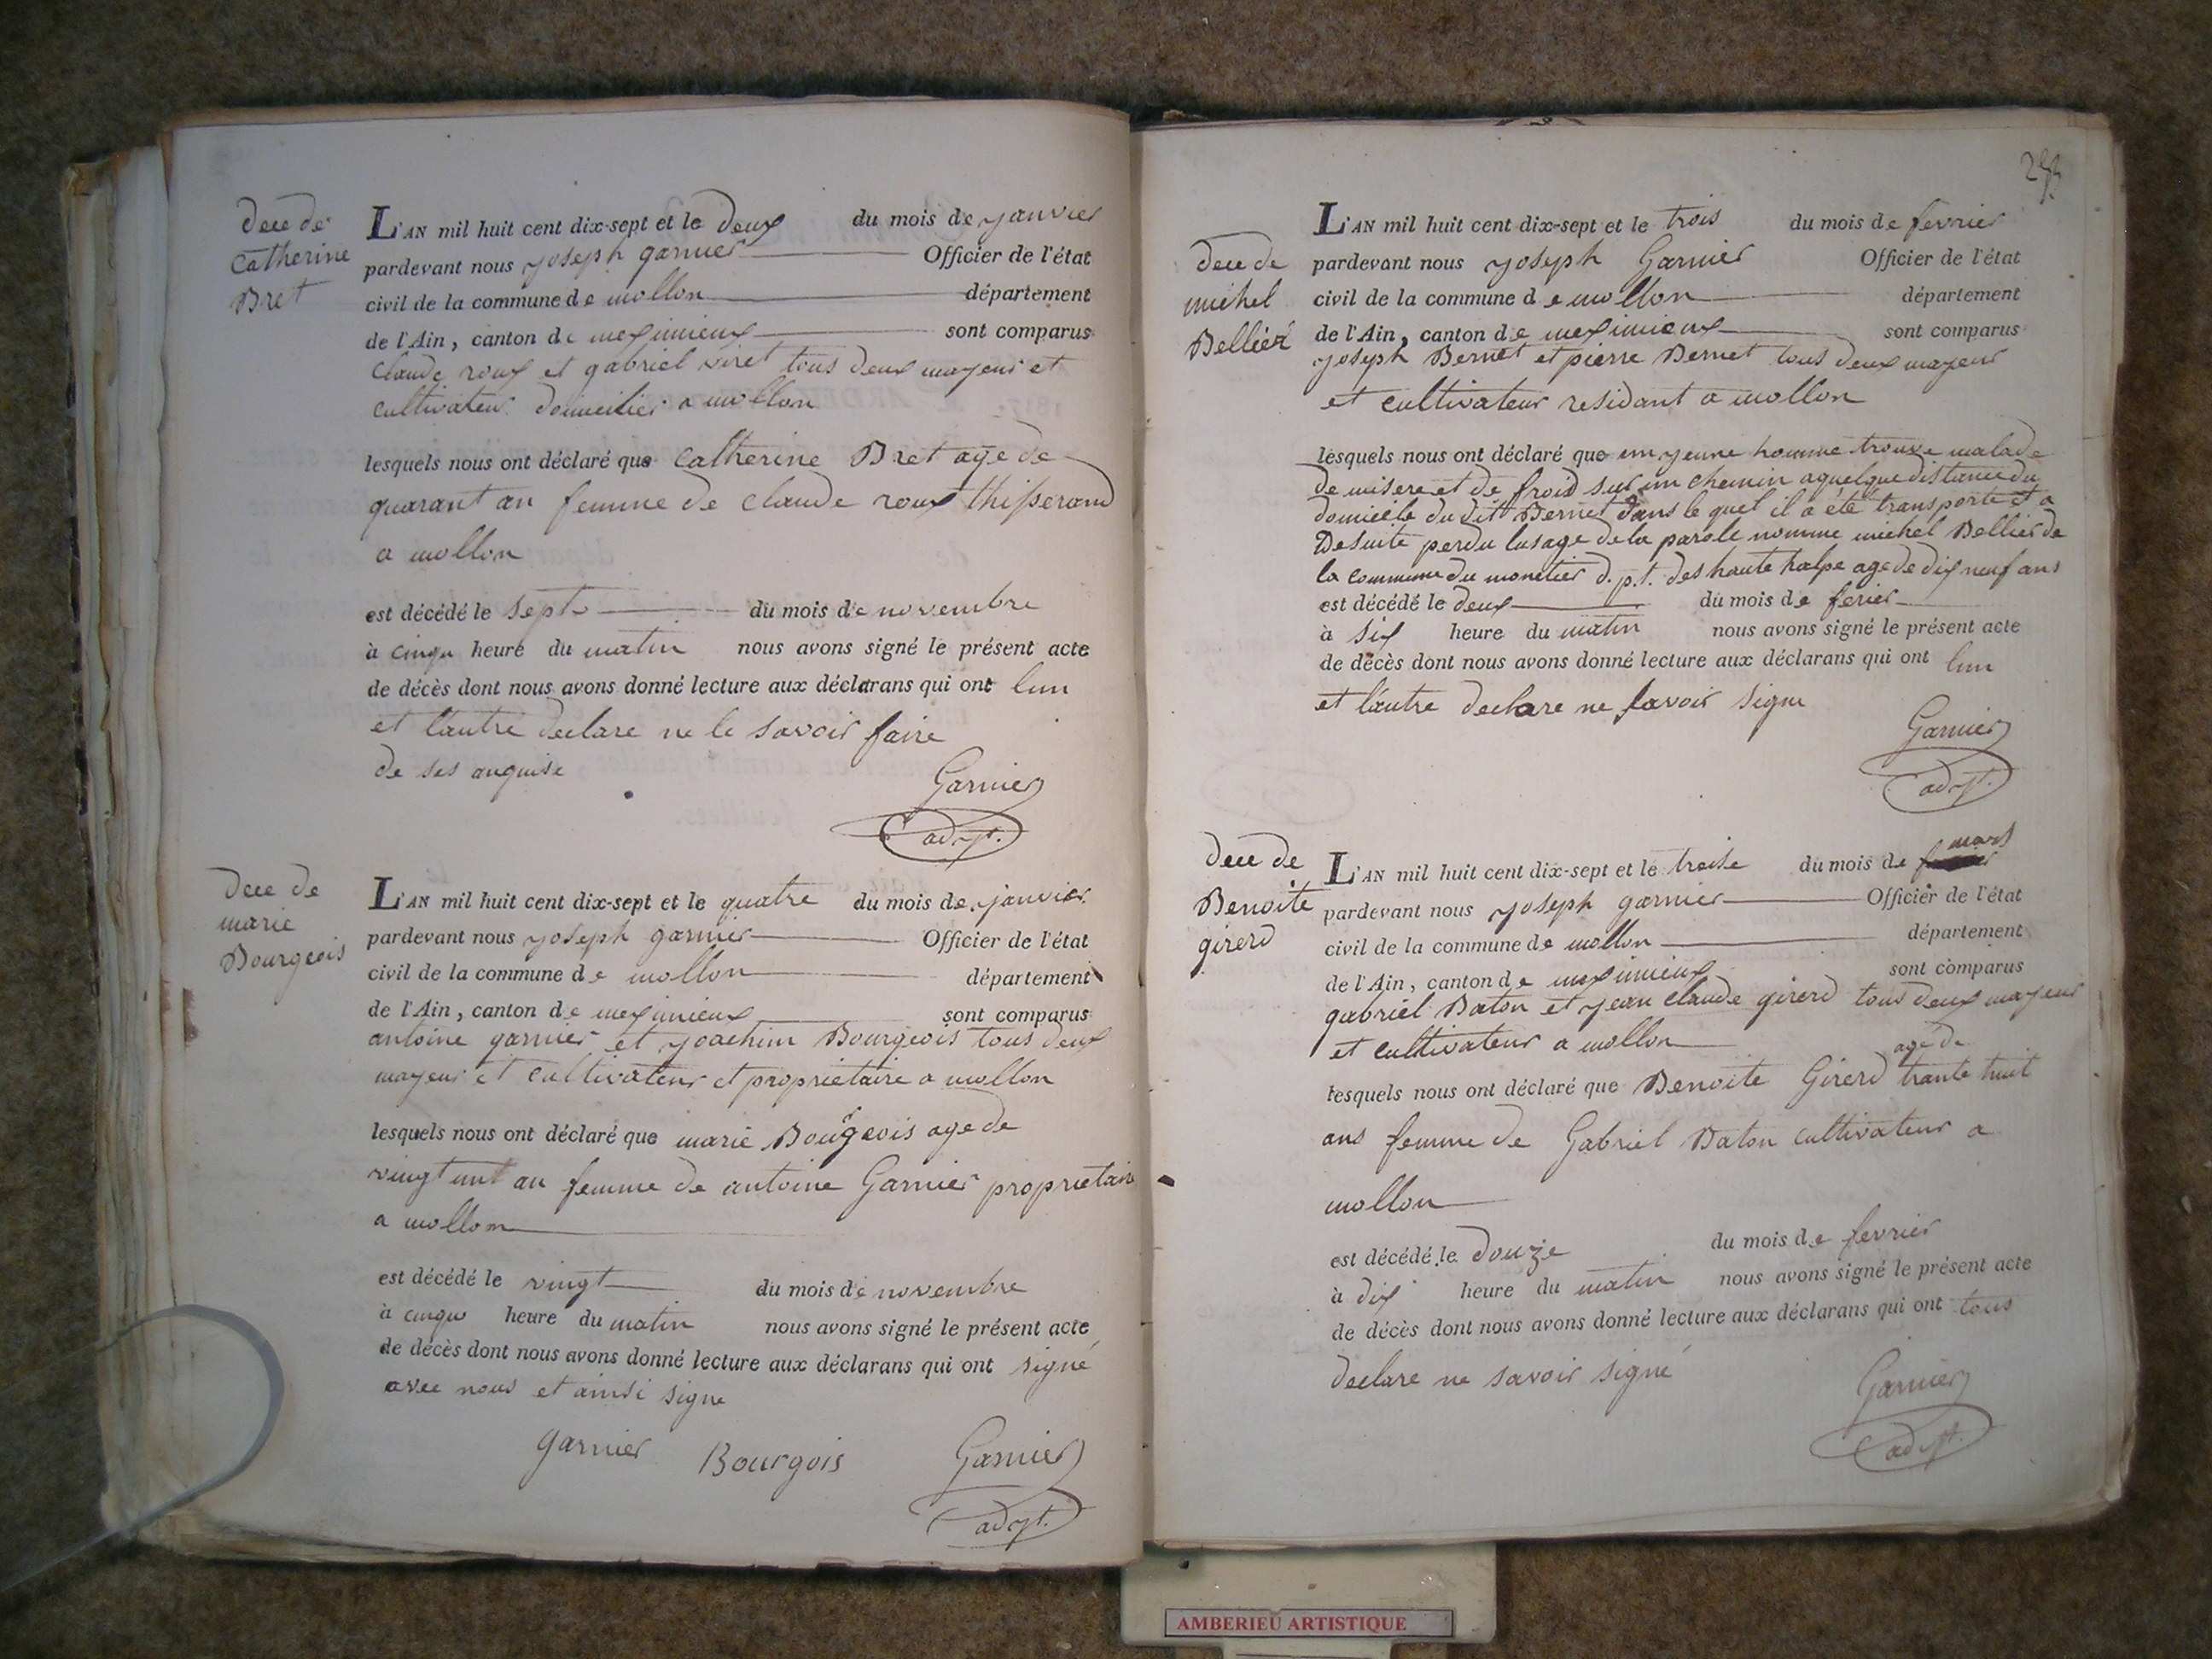 Dece de
Catherine
Bret
L'AN mil huit cent dix-sept et le deux du mois de janvier
pardevant nous joseph garnier Officier de l'état
civil de la commune de mollon département
de l'Ain, canton de meximieux sont comparus
Claude roux et gabriel viret tous deux mayeur et
cultivateur domicilier a mollon
lesquels nous ont déclaré que catherine Bret age de
quarant an femme de claude roux thisserand
a mollon
est décédé le sept du mois de novembre
à cinqu heure du matin nous avons signé le présent acte
de décès dont nous avons donné lecture aux déclarans qui ont lun
et lautre declare ne le savoir faire
de ses anquise
Garnier
adjt.
Dece de
marie
Bourgeois
L'AN mil huit cent dix-sept et le quatre du mois de janvier
pardevant nous joseph garnier Officier de l'état
civil de la commune de mollon département
de l'Ain, canton de meximieux sont comparus
antoine garnier et joachim Bourgeois tous deux
mayeur et cultivateur et proprietaire a mollon
lesquels nous ont déclaré que marie Bourgeois age de
vingt unt an femme de antoine Garnier proprietaire
a mollon
est décédé le vingt du mois de novembre
à cinqu heure du matin nous avons signé le présent acte
de décès dont nous avons donné lecture aux déclarans qui ont signé
avec nous et ainsi signe
garnier Bourgois Garnier
adjt.
Dece de
michel
Bellier
L'AN mil huit cent dix-sept et le trois du mois de fevrier
pardevant nous joseph Garnier Officier de l'état
civil de la commune de mollon département
de l'Ain, canton de meximieux sont comparus
joseph Bernet et pierre Bernet tous deux mayeur
et cultivateur residant a mollon
lesquels nous ont déclaré que un jeune homme trouve malade
de misere et de froid sur un chemin a quelque distance du
domicile du dit Bernet dans le quel il a été transporté et a
desuite perdu lusage de la parole nomme michel Bellier de
la commune du monetier d.p.t. des haute halpe age de dix neuf ans
est décédé le deux du mois de ferier
à six heure du matin nous avons signé le présent acte
de décès dont nous avons donné lecture aux déclarans qui ont lun
et lautre declare ne savoir signe
Garnier
adjt.
Dece de
Benoite
girerd
L'AN mil huit cent dix-sept et le treise du mois de mars
pardevant nous joseph garnier Officier de l'état
civil de la commune de mollon département
de l'Ain, canton de meximieux sont comparus
gabriel Baton et jean claude girerd tous deux mayeur
et cultivateur a mollon
age de
lesquels nous ont déclaré que Benoite Girerd trante huit
ans femme de Gabriel Baton cultivateur a
mollon
est décédé le douze du mois de fevrier
à dix heure du matin nous avons signé le présent acte
de décès dont nous avons donné lecture aux déclarans qui ont tous
declare ne savoir signé
Garnier
adjt.
AMBERIEU ARTISTIQUE